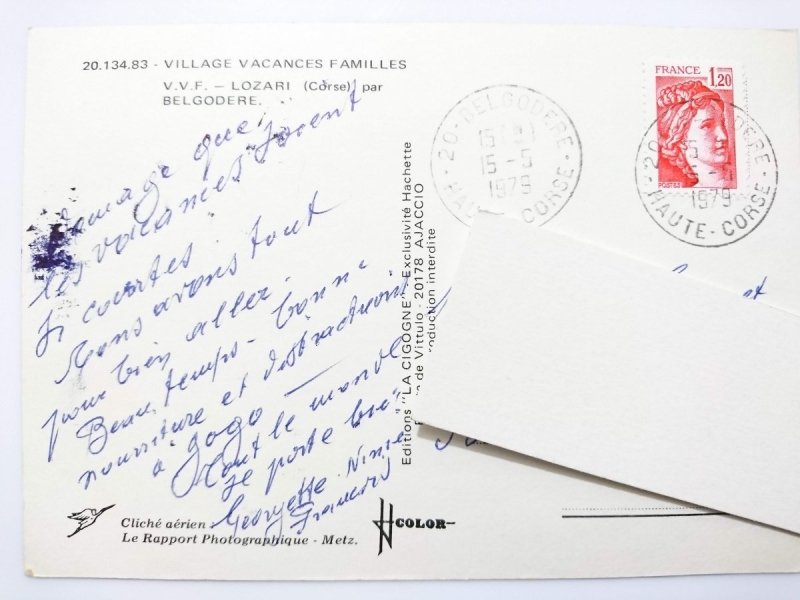 20.134.83 - VILLAGE VACANCES FAMILLES
V.V.F. - LOZARI (Corse) par
BELGODERE.
Dommage que
les vacances soient
si courtes.
Nous avons tout
pour bien aller.
Beau temps - bonne
nourriture et distractions
à gogo -
Tout le monde
se porte bien
Georgette Ninie
Francois
Cliché aérien
Le Rapport Photographique - Metz.
COLOR
Editions "LA CIGOGNE" - Exclusivité Hachette
de Vittulo - 20178 AJACCIO
oduction interdite
20-BELGODERE
15-5
1979
HAUTE-CORSE
FRANCE
1,20
POSTES
20 DERE
1979
HAUTE-CORSE